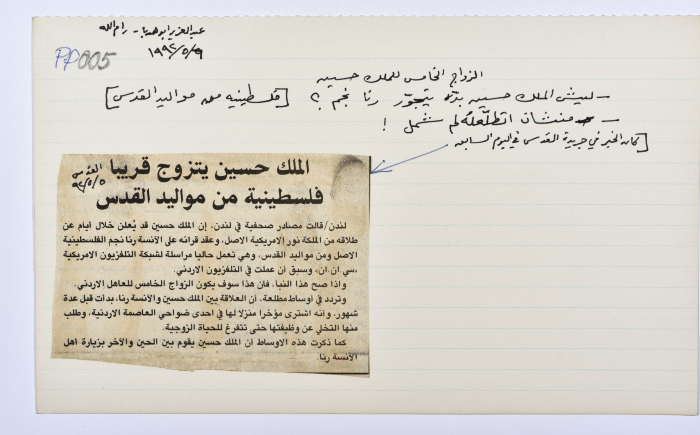 عبدالعزيز ابوهدبا - رام الله
١٩٩٢/٥/٩
PP005
الزواج الخامس للملك حسين
- ليش الملك حسين بدّه يتجوّز رنا نجم ؟ [فلسطينيه من مواليد القدس]
- منشان اتطلّعله لم شمل !
[كان الخبر في جريدة القدس في اليوم السابق
القدس
٩٢/٥/٥
الملك حسين يتزوج قريبا
فلسطينية من مواليد القدس
لندن/قالت مصادر صحفية في لندن، إن الملك حسين قد يُعلن خلال أيام عن
طلاقه من الملكة نور الامريكية الاصل، وعقد قرانه على الآنسة رنا نجم الفلسطينية
الاصل ومن مواليد القدس، وهي تعمل حاليا مراسلة لشبكة التلفزيون الامريكية
«سي.ان.ان»، وسبق أن عملت في التلفزيون الاردني.
واذا صح هذا النبا، فان هذا سوف يكون الزواج الخامس للعاهل الاردني.
وتردد في أوساط مطلعة، أن العلاقة بين الملك حسين والآنسة رنا، بدأت قبل عدة
شهور، وأنه اشترى مؤخرا منزلا لها في احدى ضواحي العاصمة الاردنية، وطلب
منها التخلي عن وظيفتها حتى تتفرغ للحياة الزوجية.
كما ذكرت هذه الاوساط أن الملك حسين يقوم بين الحين والآخر بزيارة أهل
الآنسة رنا.